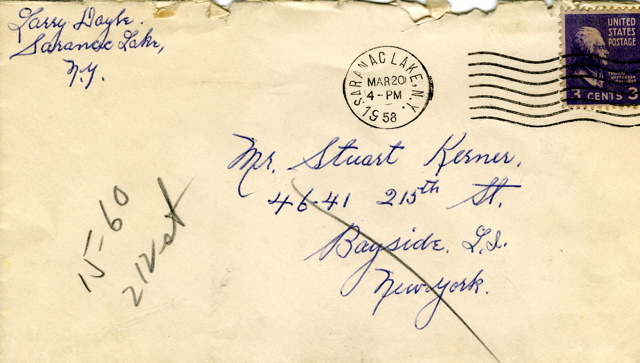 Larry Doyle.
Saranac Lake,
N.Y.
SARANAC LAKE, N.Y.
MAR 20
4-PM
1958
UNITED
STATES
POSTAGE
3 CENTS 3
Mr. Stuart Kerner.
46-41 215th St.
Bayside. L.I.
New York.
15-60
212 st